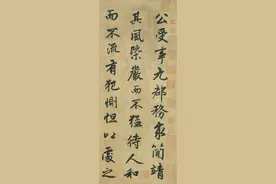 公受事尤都務求簡靖
其風槩嚴而不猛待人和
而不流有犯惻怛以處之